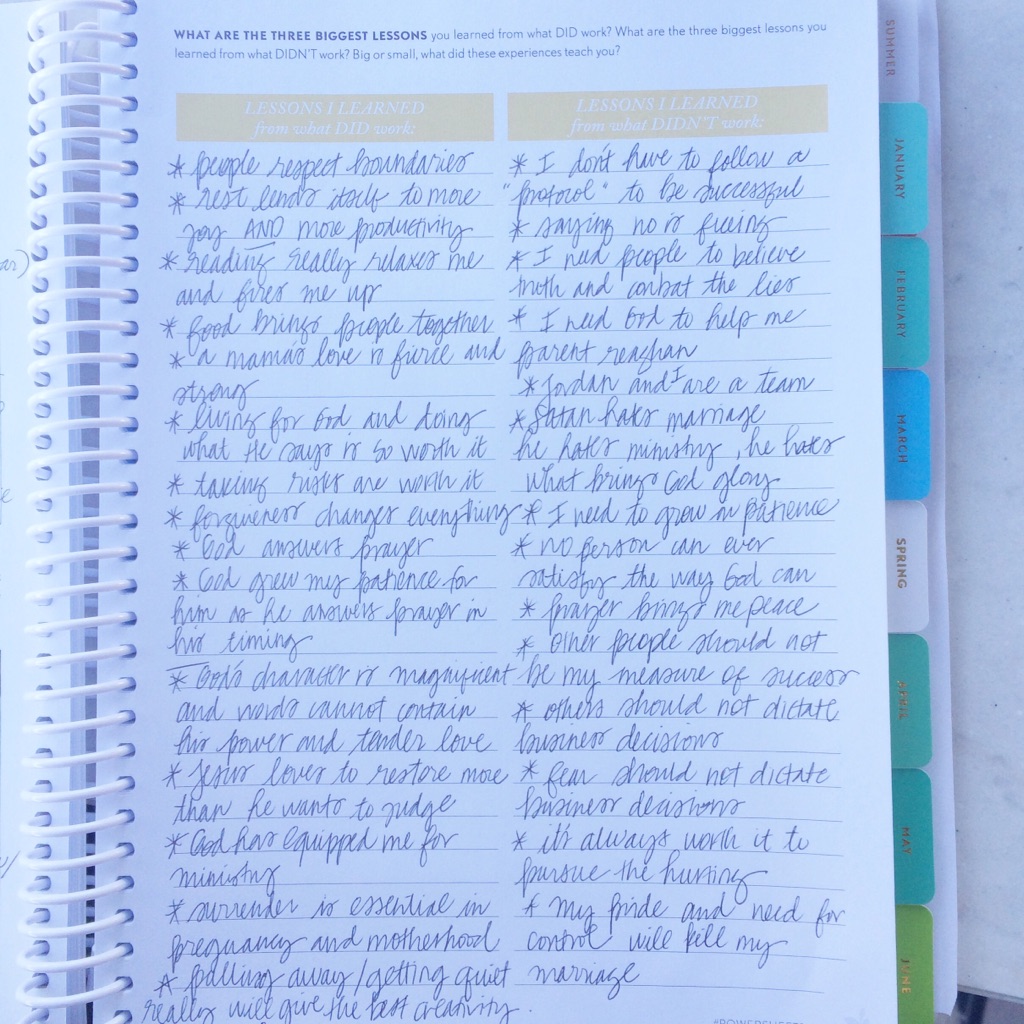 WHAT ARE THE THREE BIGGEST LESSONS you learned from what DID work? What are the three biggest lessons you
learned from what DIDN'T work? Big or small, what did these experiences teach you?
LESSONS I LEARNED
from what DID work:
* people respect boundaries
* rest lends itself to more
joy AND more productivity
* reading really relaxes me
and fires me up
* food brings people together
* a mamas love is fierce and
strong
* living for God and doing
what He says is so worth it
* taking risks are worth it
* forgiveness changes everything
* God answers prayer
* God grew my patience for
him as he answers prayer in
his timing
* God's character is magnificent
and words cannot contain
his power and tender love
* Jesus loves to restore more
than he wants to judge
* God has equipped me for
ministry
* surrender is essential in
pregnancy and motherhood
* pulling away/getting quiet
really will give the best creativity.
LESSONS I LEARNED
from what DIDN'T work:
* I don't have to follow a
"protocol" to be successful
* saying no is freeing
* I need people to believe
truth and combat the lies
* I need God to help me
parent reaghan
* Jordan and I are a team
* Satan hates marriage
he hates ministry, he hates
what brings God glory
* I need to grow in patience
* no person can ever
satisfy the way God can
* prayer brings me peace
* other people should not
be my measure of success
* others should not dictate
business decisions
* fear should not dictate
business decisions
* it's always worth it to
pursue the hurting
* my pride and need for
control will kill my
marriage
SUMMER
JANUARY
FEBRUARY
MARCH
SPRING
APRIL
MAY
JUNE